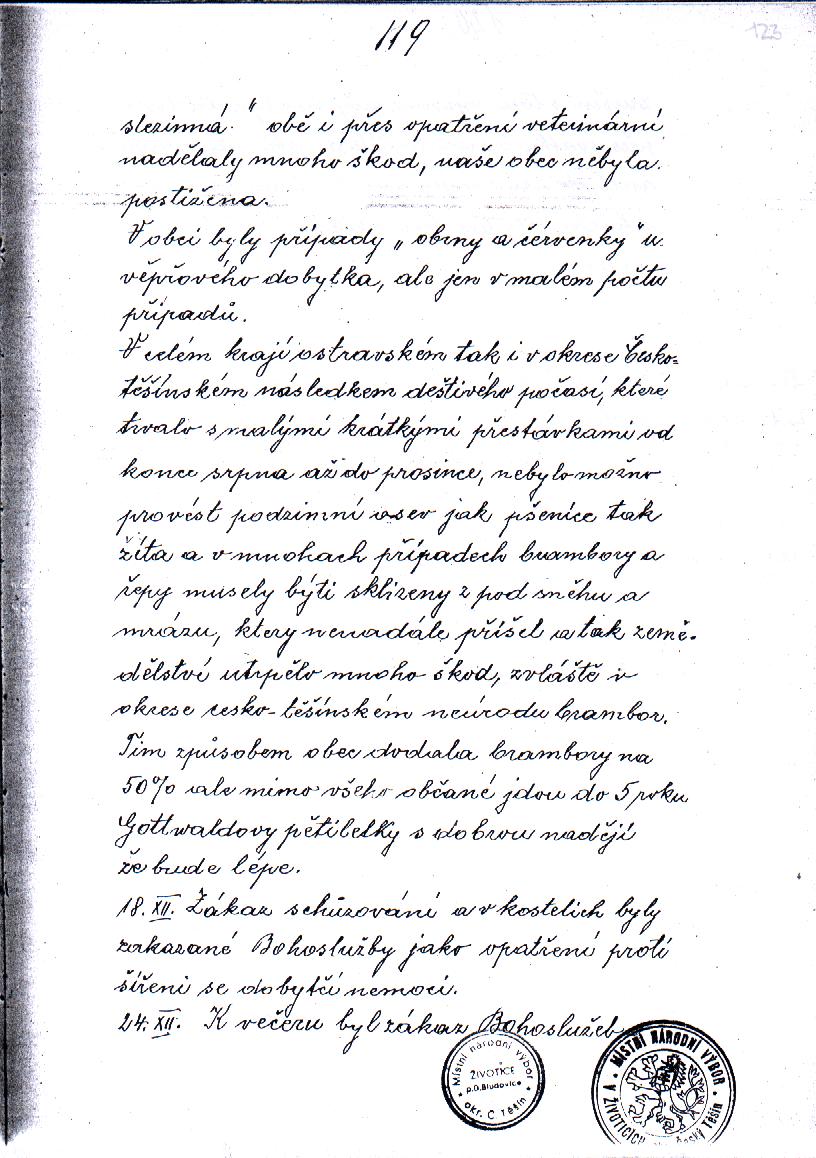 119
123
slezinná." obě i přes opatření veterinární
nadělaly mnoho škod, naše obec nebyla
postižena.
V obci byly případy „obrny a červenky" u
vepřového dobytka, ale jen v malém počtu
případů.
V celém kraji ostravském tak i v okrese Česko-
těšínském následkem deštivého počasí, které
trvalo s malými krátkými přestávkami od
konce srpna až do prosince, nebylo možno
provést podzimní osev jak pšenice tak
žita a v mnohach případech brambory a
řepy musely býti sklizeny z pod sněhu a
mrázu, ktery nenadále přišel a tak země-
dělství utrpělo mnoho škod, zvláště v
okrese česko-těšínském neúrodu brambor.
Tím způsobem obec dodala brambory na
50% ale mimo všeho občané jdou do 5 roku
Gottwaldovy pětiletky s dobrou nadějí
že bude lépe.
18. XII. Zákaz schůzování a v kostelich byly
zakazané Bohoslužby jako opatření proti
šířeni se dobytčí nemoci.
24. XII. K večeru byl zákaz Bohoslužeb
Místní národní výbor
ŽIVOTICE
p.D.Bludovice
okr. Č Těšín
MÍSTNÍ NÁRODNÍ VÝBOR
V ŽIVOTICÍCH
Český Těšín